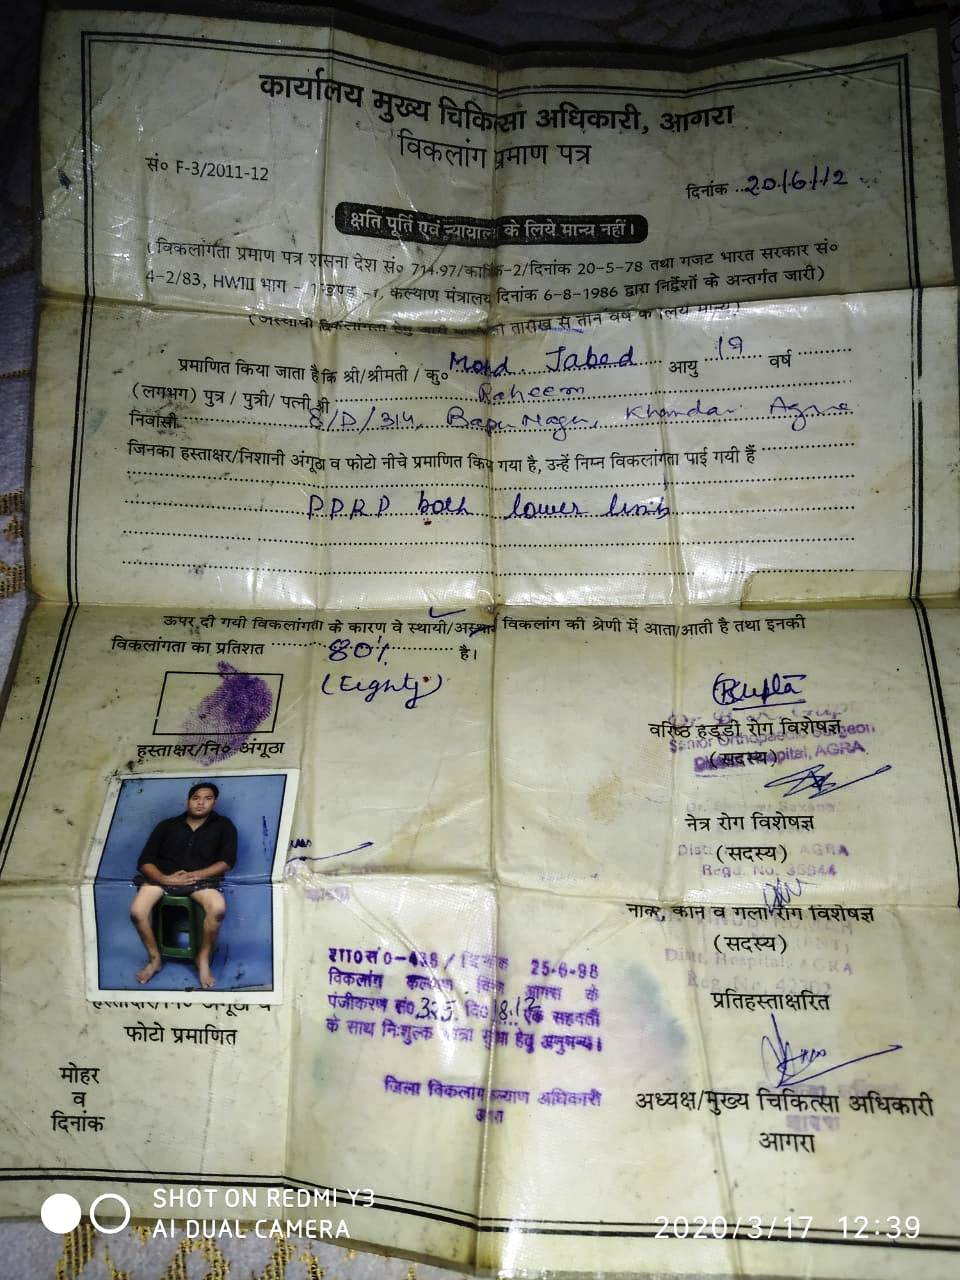 कार्यालय मुख्य चिकित्सा अधिकारी, आगरा
विकलांग प्रमाण पत्र
सं० F-3/2011-12
दिनांक 20/6/12
क्षति पूर्ति एवं न्यायालय के लिये मान्य नहीं।
(विकलांगता प्रमाण पत्र शासना देश सं० 714.97/का -2/दिनांक 20-5-78 तथा गजट भारत सरकार सं०
4-2/83, HWIII भाग - कल्याण मंत्रालय दिनांक 6-8-1986 द्वारा निर्देशों के अन्तर्गत जारी)
तारीख से तीन वर्ष के लिये मान्य)
प्रमाणित किया जाता है कि श्री/श्रीमती / कु० Mohd. Jabed आयु 19 वर्ष
(लगभग) पुत्र / पुत्री/ पत्नी श्री Raheem
निवासी 8/D/314, Bapu Nagar, Khandari Agra
जिनका हस्ताक्षर/निशानी अंगूठा व फोटो नीचे प्रमाणित किया गया है, उन्हें निम्न विकलांगता पाई गयी हैं
PPRP both lower limb
ऊपर दी गयी विकलांगता के कारण वे स्थायी/अस्थायी विकलांग की श्रेणी में आता/आती है तथा इनकी
विकलांगता का प्रतिशत 80% है।
(Eighty)
हस्ताक्षर/नि० अंगूठा
वरिष्ठ हड्डी रोग विशेषज्ञ
Senior Orthopaedic Surgeon
(सदस्य)
Hospital, AGRA
नेत्र रोग विशेषज्ञ
(सदस्य)
AGRA
Regd. No. 35844
नाक, कान व गला रोग विशेषज्ञ
(सदस्य)
Distt. Hospital AGRA
प्रतिहस्ताक्षरित
अध्यक्ष/मुख्य चिकित्सा अधिकारी
आगरा
शा0सं0-438 / दिनांक 25-6-98
विकलांग कल्याण विभाग आगरा के
पंजीकरण सं0 325 दि0 एक सहवर्ती
के साथ निःशुल्क यात्रा सुविधा हेतु अनुमन्य।
जिला विकलांग कल्याण अधिकारी
आगरा
फोटो प्रमाणित
मोहर
व
दिनांक
SHOT ON REDMI Y3
AI DUAL CAMERA
2020/3/17 12:39